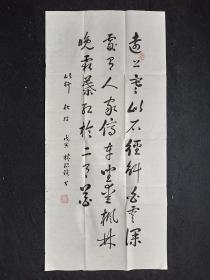 遠上寒山石徑斜白雲深
處有人家停車坐愛楓林
晚霜葉紅於二月花
山行 杜牧 戊寅 書